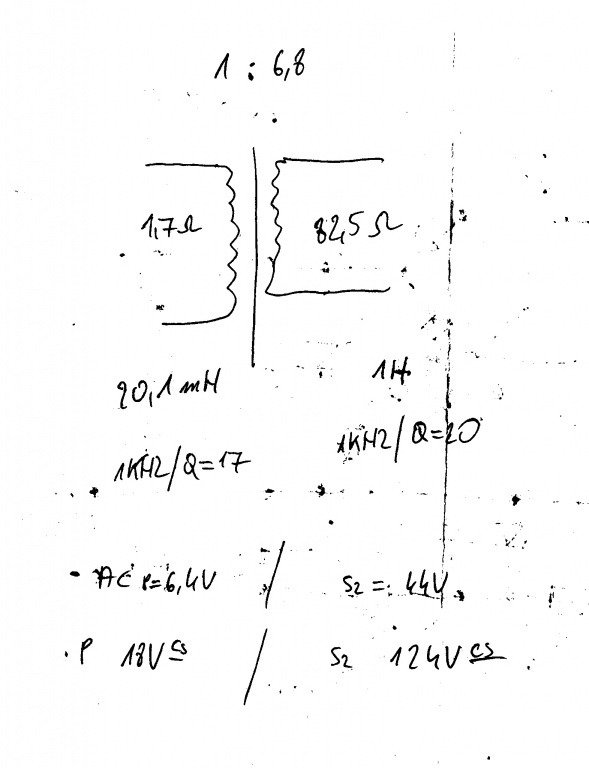 1 : 6,8
1,7Ω 82,5 Ω
20,1 mH 1H
1KHZ/Q=17 1KHZ/Q=20
- AC P=6,4V / S2 = 44V
. P 18V cs / S2 124V cs